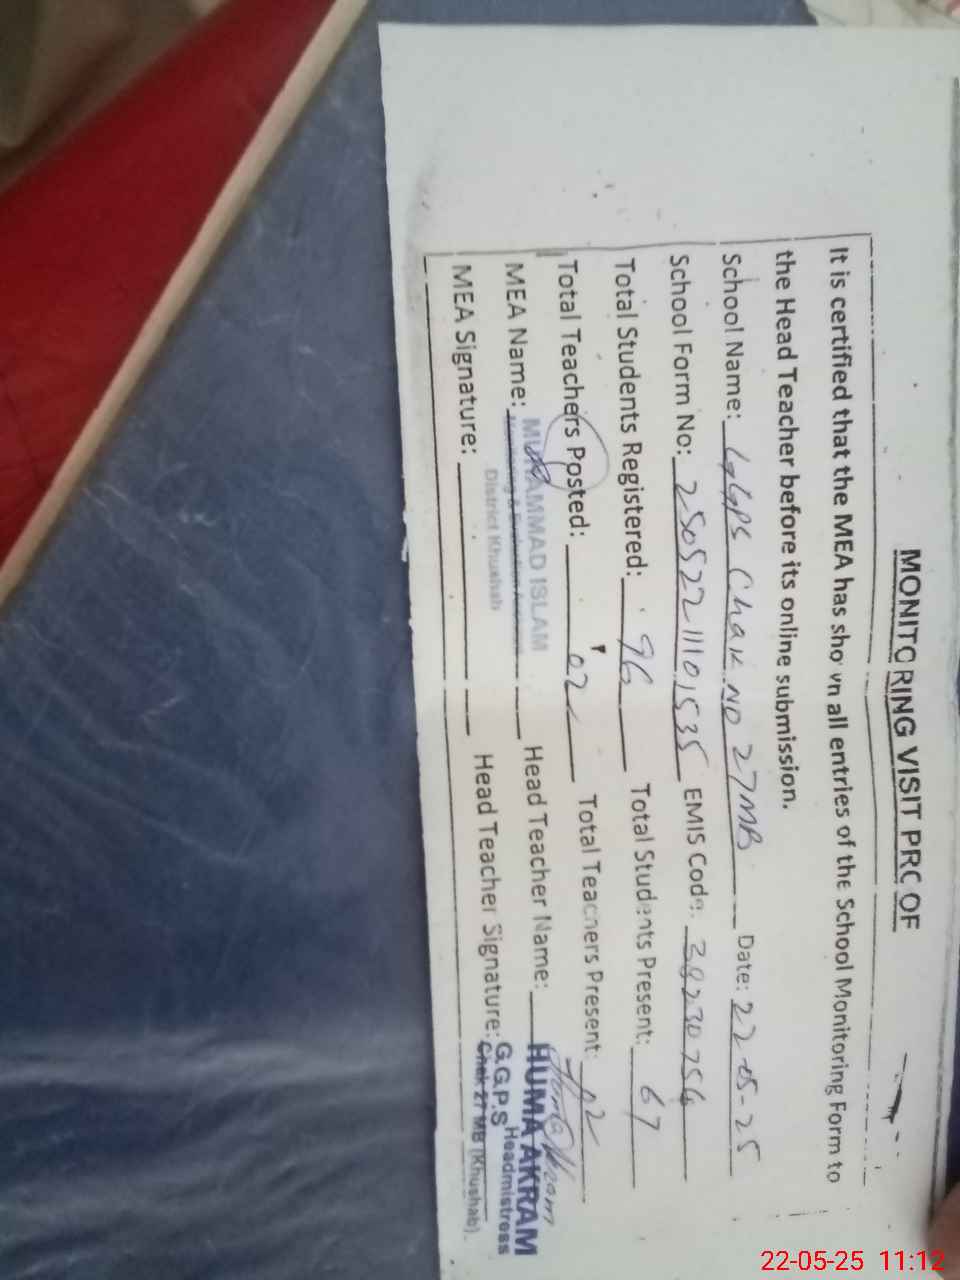 MONITORING VISIT PROOF
It is certified that the MEA has shown all entries of the School Monitoring Form to
the Head Teacher before its online submission.
School Name: GGPS Chak No 27MB Date: 22-05-25
School Form No: 25052211101535 EMIS Code: 38230754
Total Students Registered: 96 Total Students Present: 67
Total Teachers Posted: 02 Total Teachers Present: 02
MEA Name: MUHAMMAD ISLAM Head Teacher Name: HUMA AKRAM
Monitoring & Evaluation
District Khushab
Headmistress
MEA Signature: Head Teacher Signature: G.G.P.S
Chak 27 MB (Khushab).
22-05-25 11:12